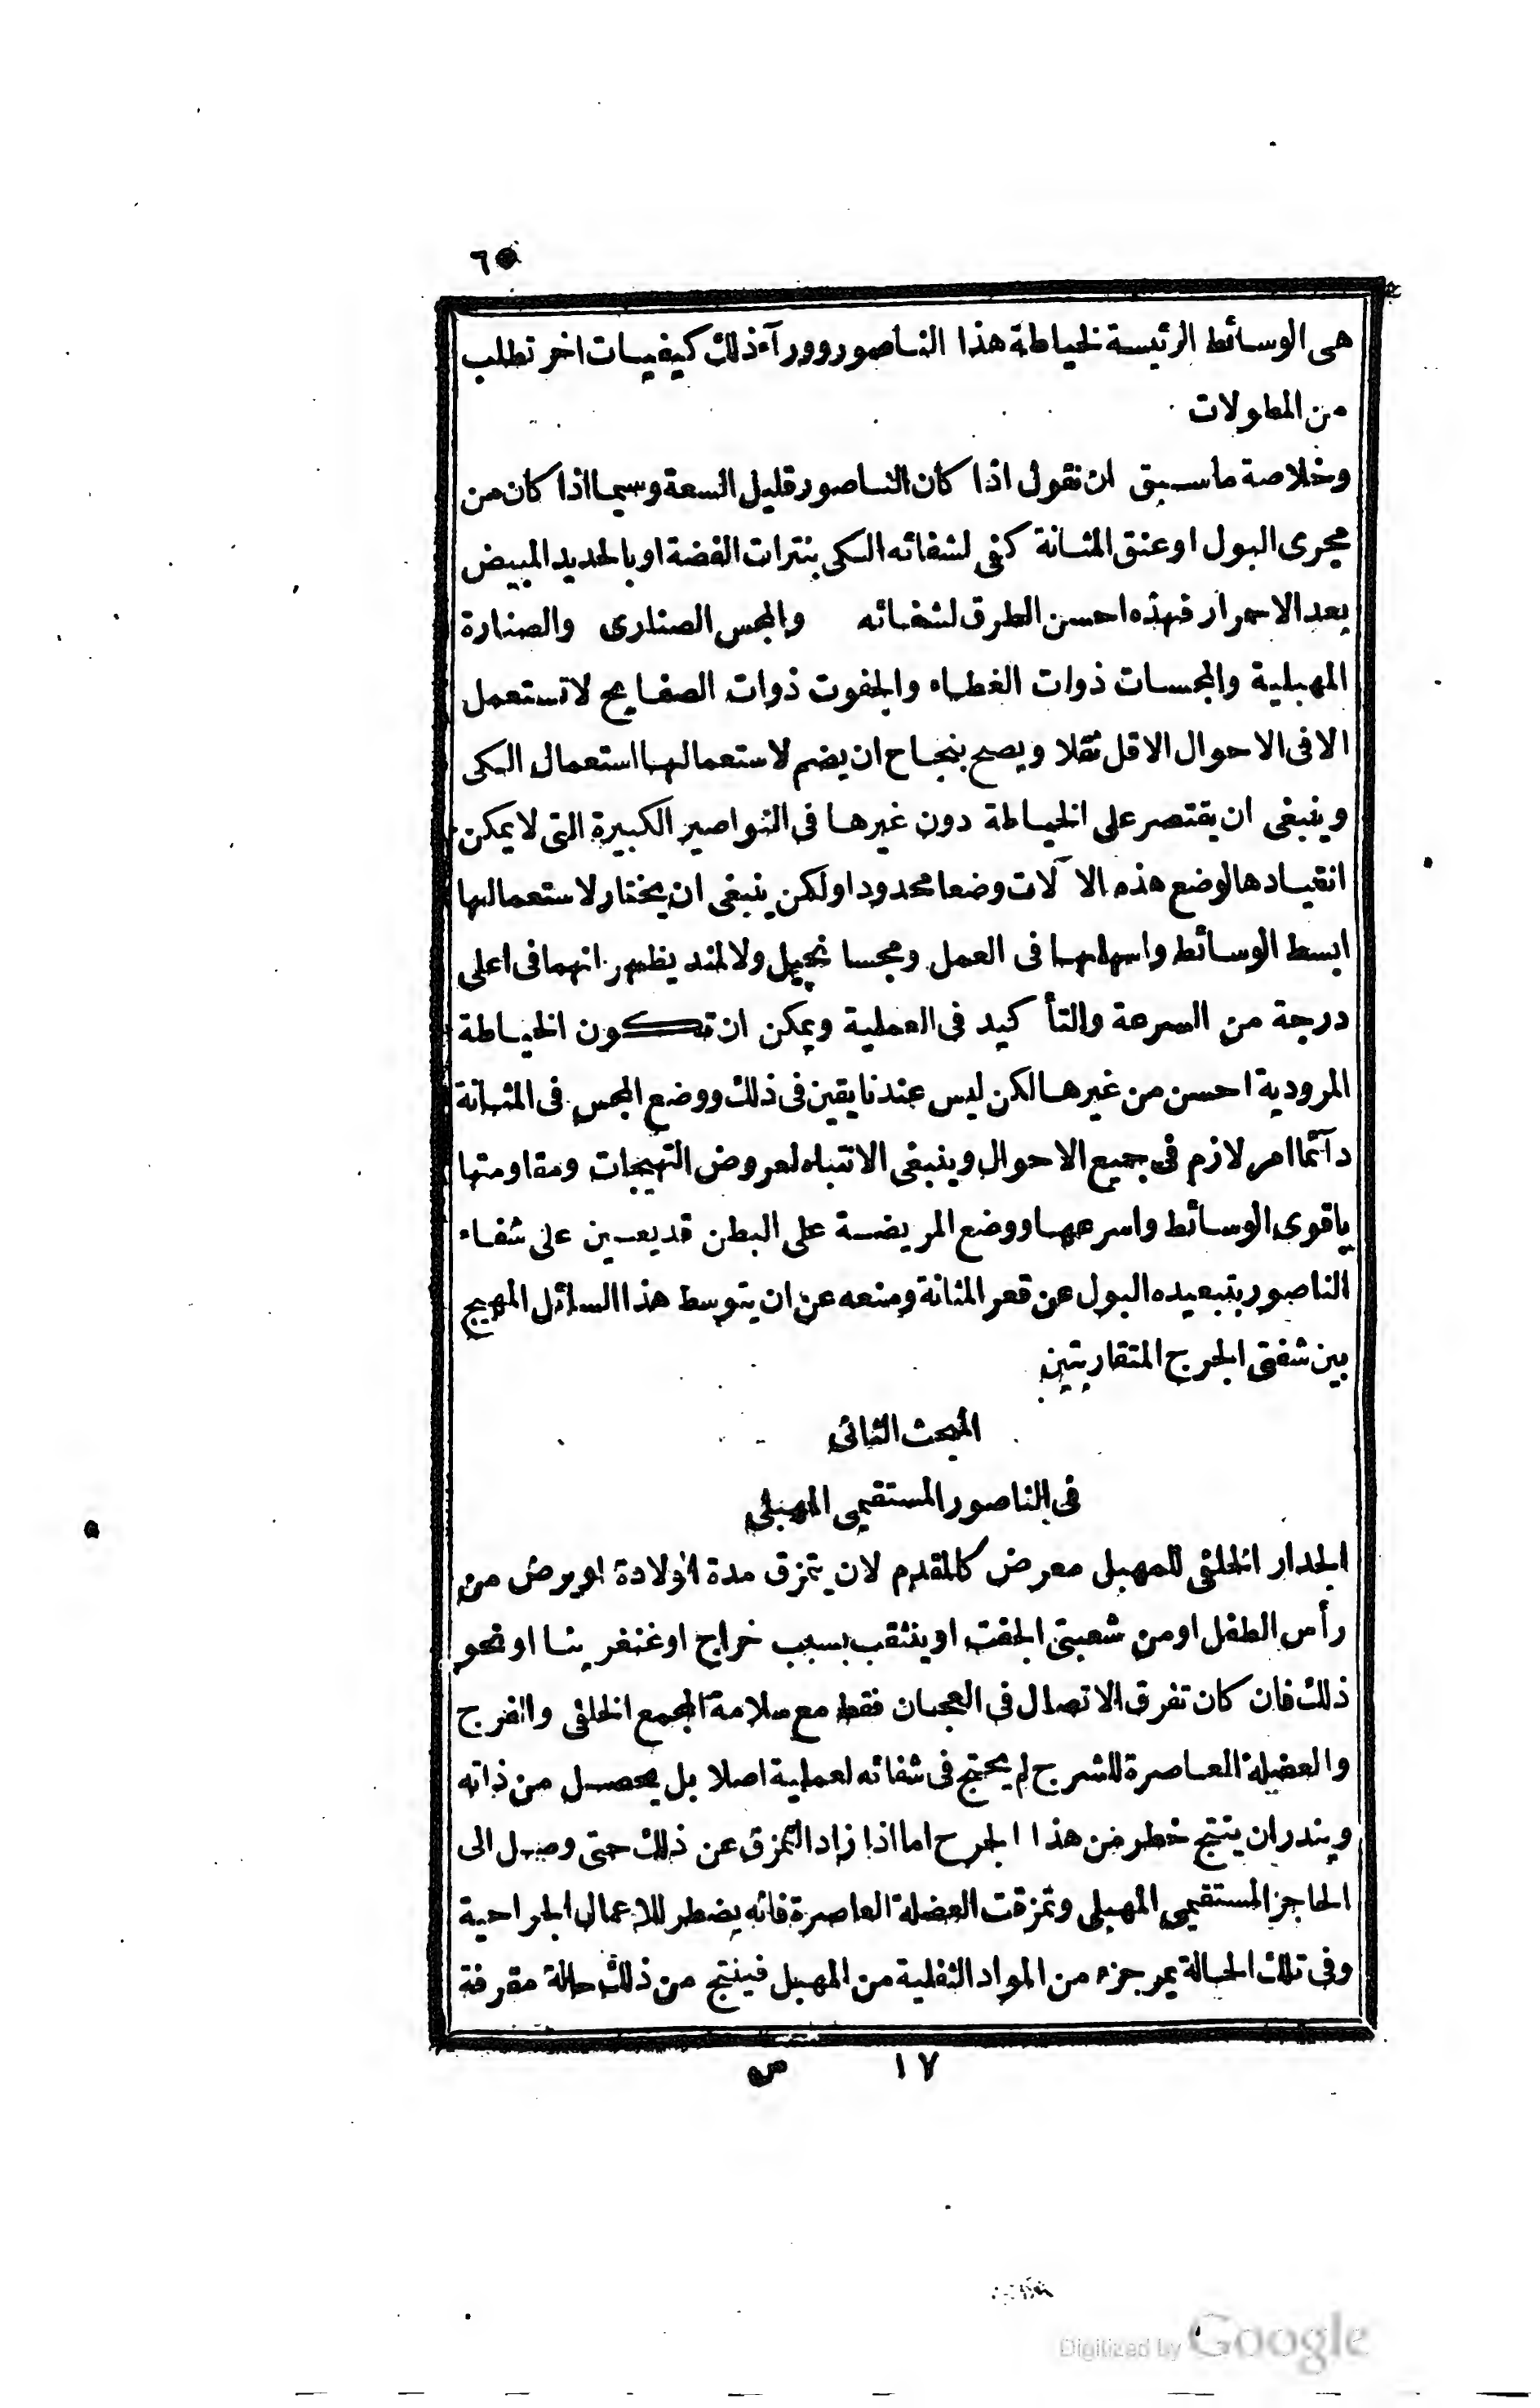 ٦٥
هى الوسائط الرئيسة لخياطة هذا الناصور وورآء ذلك كيفيات اخر تطلب
من المطولات
وخلاصة ما سبق ان نقول اذا كان الناصور قليل السعة وسيما اذا كان من
مجرى البول او عنق المثانة كفى لشفائه الكى بنترات الفضة او بالحديد المبيض
بعد الاحمرار فهذه احسن الطرق لشفائه والمجس الصنارى والصنارة
المهبلية والمجسات ذوات الغطاء والجفوت ذوات الصفايح لا تستعمل
الا فى الاحوال الاقل ثقلا ويصح بنجاح ان يضم لاستعمالها استعمال الكى
وينبغى ان يقتصر على الخياطة دون غيرها فى النواصير الكبيرة التى لا يمكن
انقيادها لوضع هذه الاآلات وضعا محدودا ولكن ينبغى ان يختار لاستعمالها
ابسط الوسائط واسهلها فى العمل ومجسا نجيل ولالمند يظهر انهما فى اعلى
درجة من السرعة والتأكيد فى العملية ويمكن ان تكون الخياطة
المرودية احسن من غيرها لكن ليس عندنا يقين فى ذلك ووضع المجس فى المثانة
دآئما امر لازم فى جميع الاحوال وينبغى الانتباه لعروض التهيجات ومقاومتها
باقوى الوسائط واسرعها ووضع المريضة على البطن قد يعين على شفاء
الناصور بتبعيده البول عن قعر المثانة ومنعه عن ان يتوسط هذا السائل المهيج
بين شفتى الجرح المتقاربتين
المبحث الثانى
فى الناصور المستقيمى المهبلى
الجدار الخلفى للمهبل معرض كالمقدم لان يتمزق مدة الولادة او يرض من
رأس الطفل او من شعبتى الجفت او ينثقب بسبب خراج او غنغرينا او نحو
ذلك فان كان تفرق الاتصال فى العجان فقط مع سلامة المجمع الخلفى والفرج
والعضلة العاصرة للشرج لم يحتج فى شفائه لعملية اصلا بل يحصل من ذاته
ويندر ان ينتج خطر من هذا الجرح اما اذا زاد التمزق عن ذلك حتى وصل الى
الحاجز المستقيمى المهبلى وتمزقت العضلة العاصرة فانه يضطر للاعمال الجراحية
وفى تلك الحالة يمر جزء من المواد الثفلية من المهبل فينتج من ذلك حالة مقرفة
١٧ ص
Digitized by Google